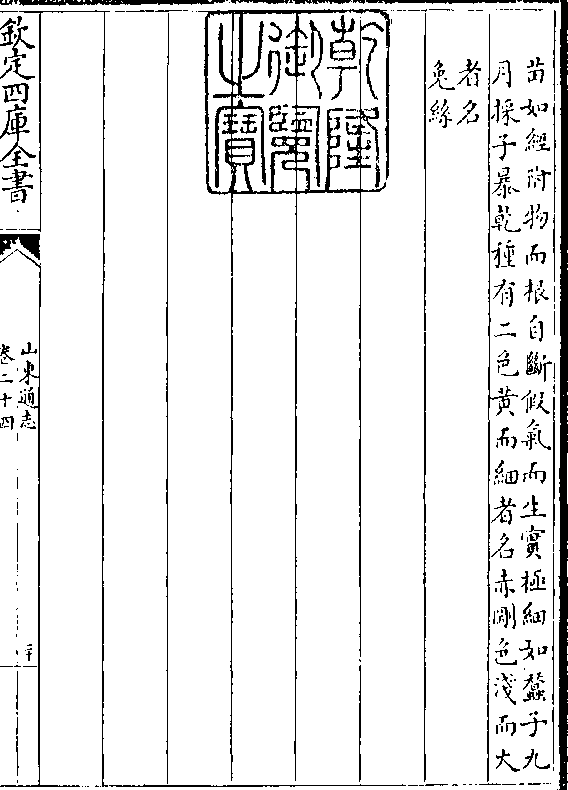 苗如經附物而根自斷假氣而生實極細如蠶子九
月採子暴乾種有二色黃而細者名赤剛色淺而大
者名
兔絲
乾隆
御覽
之寶
欽定四庫全書
山東通志
卷二十四